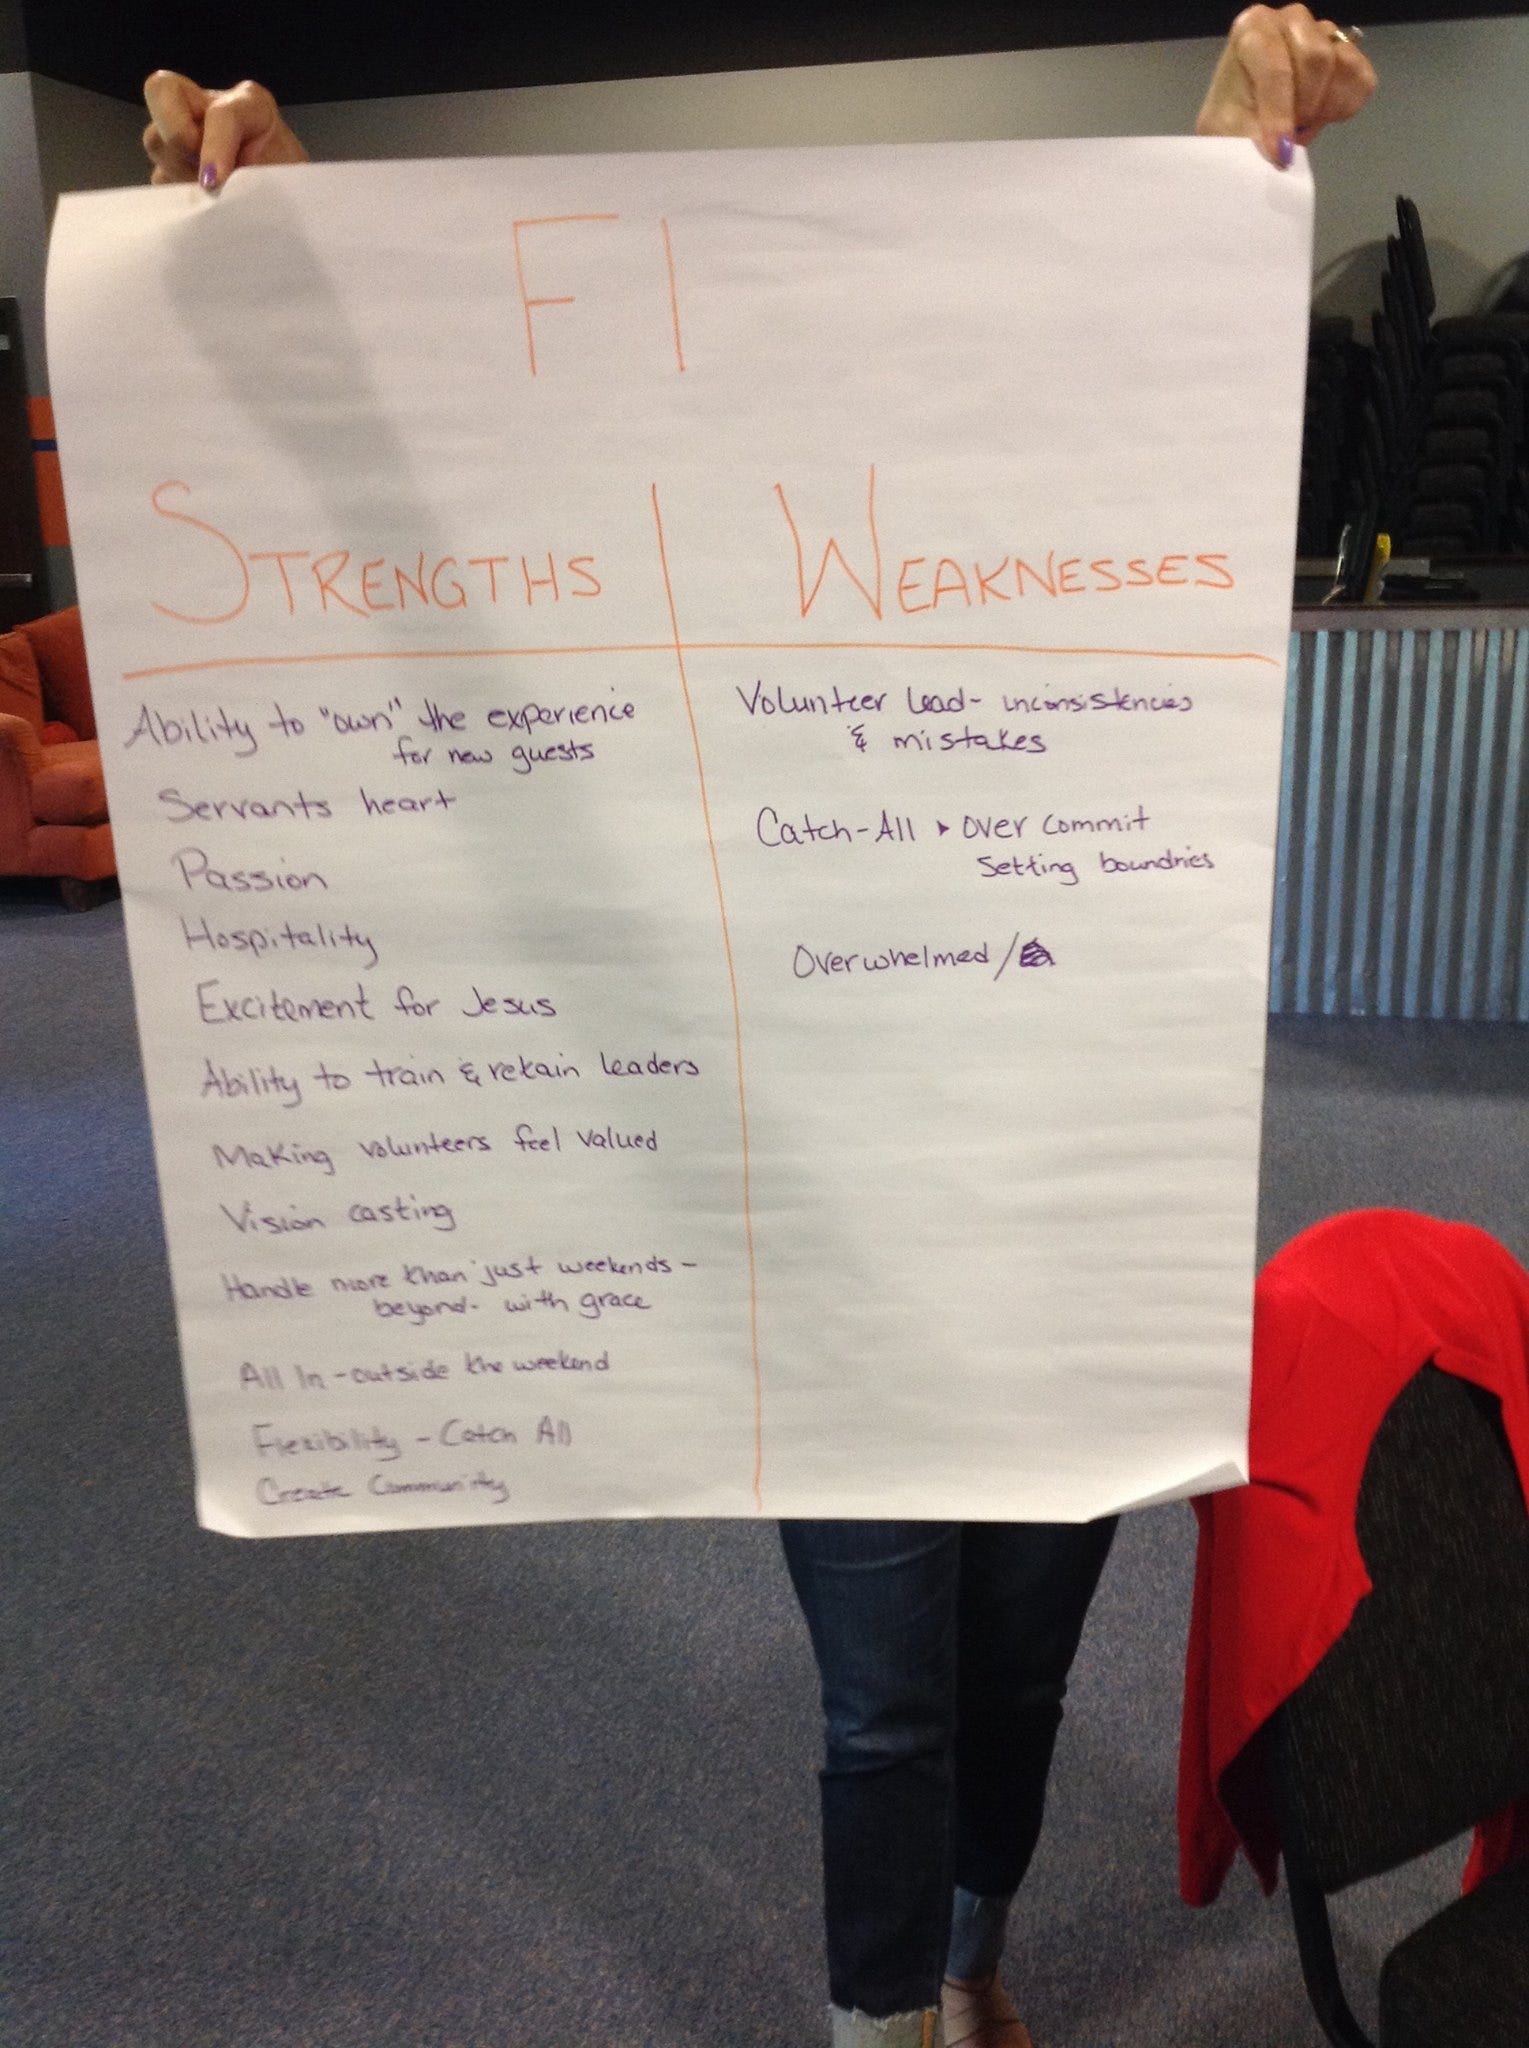 FI
STRENGTHS
Ability to "own" the experience
for new guests
Servants heart
Passion
Hospitality
Excitement for Jesus
Ability to train & retain leaders
Making volunteers feel valued
Vision casting
Handle more than just weekends -
beyond - with grace
All In - outside the weekend
Flexibility - Catch All
Create Community
WEAKNESSES
Volunteer lead - inconsistencies
& mistakes
Catch-All ▸ over commit
Setting boundries
Overwhelmed /